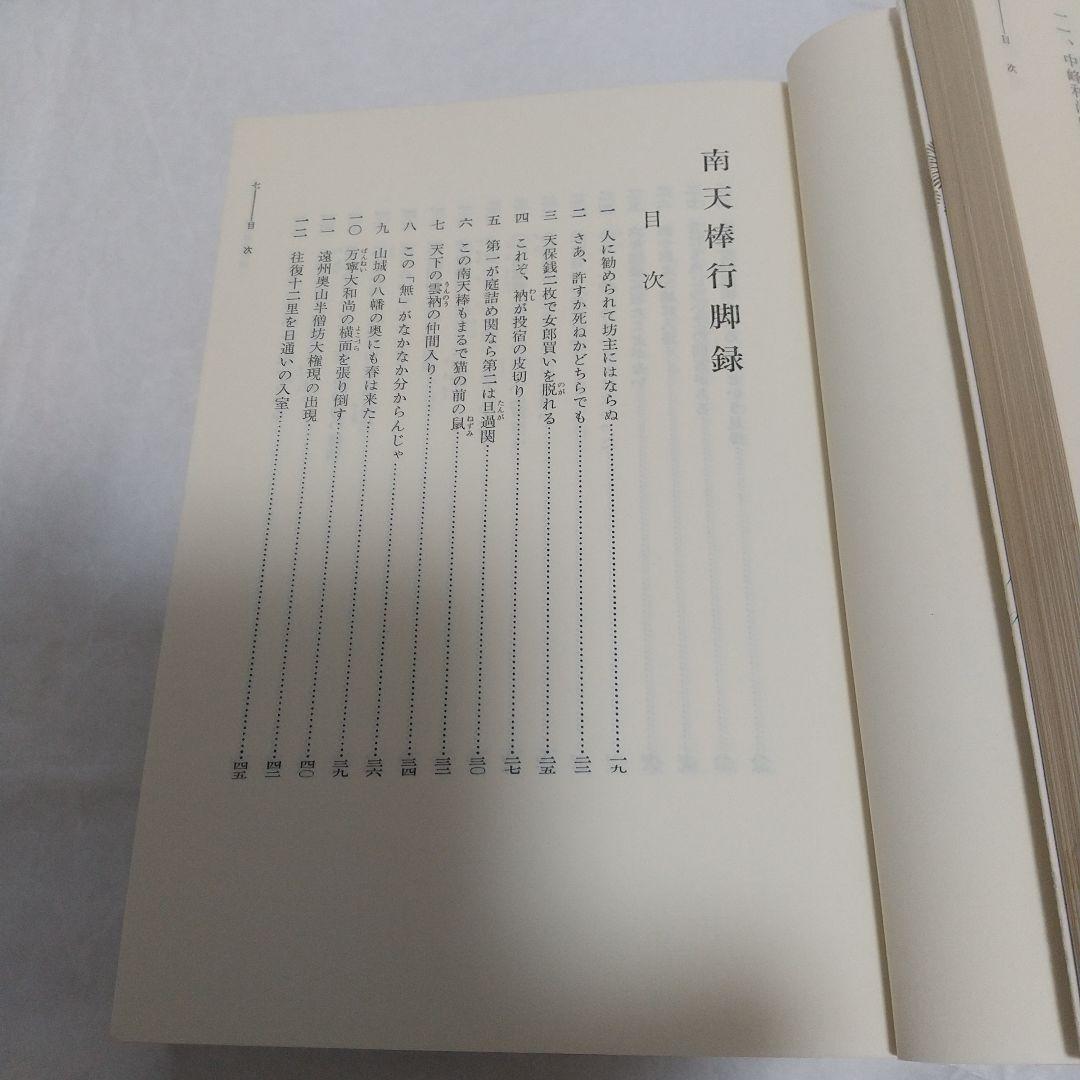 南天棒行脚録
目次
一 人に勧められて坊主にはならぬ……一九
二 さあ、許すか死ねかどちらでも……二二
三 天保銭二枚で女郎買いを脱れる……二五
四 これぞ、衲が投宿の皮切り……二七
五 第一が庭詰め関なら第二は旦過関……三〇
六 この南天棒もまるで猫の前の鼠……三二
七 天下の雲衲の仲間入り……三四
八 この「無」がなかなか分からんじゃ……三六
九 山城の八幡の奥にも春は来た……三九
一〇 万寧大和尚の横面を張り倒す……四〇
一一 遠州奥山半僧坊大権現の出現……四二
一二 往復十二里を日通いの入室……四五
七――目次
――目次
二、中峰和